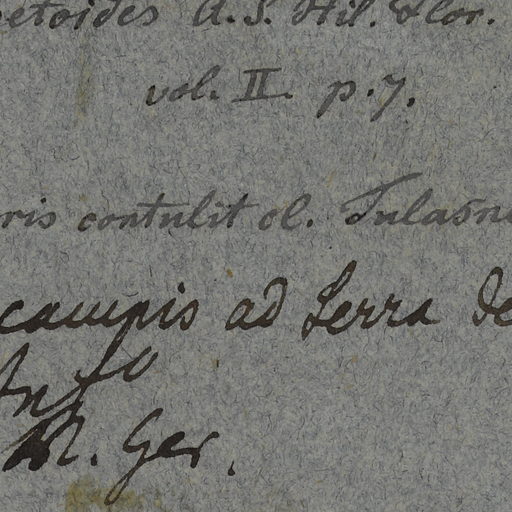 etoides A. S. Hil. Flor.
vol. II. p. 7.
ris contulit cl. Tulasne
campis ad Serra de
M. Ger.